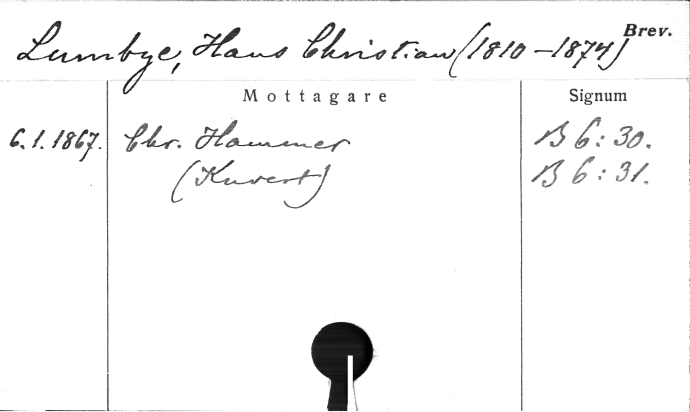 Lumbye, Hans Christian (1810–1874) Brev.
Mottagare Signum
6.1.1867. Chr. Hammer B 6:30.
(Kuvert) B 6:31.